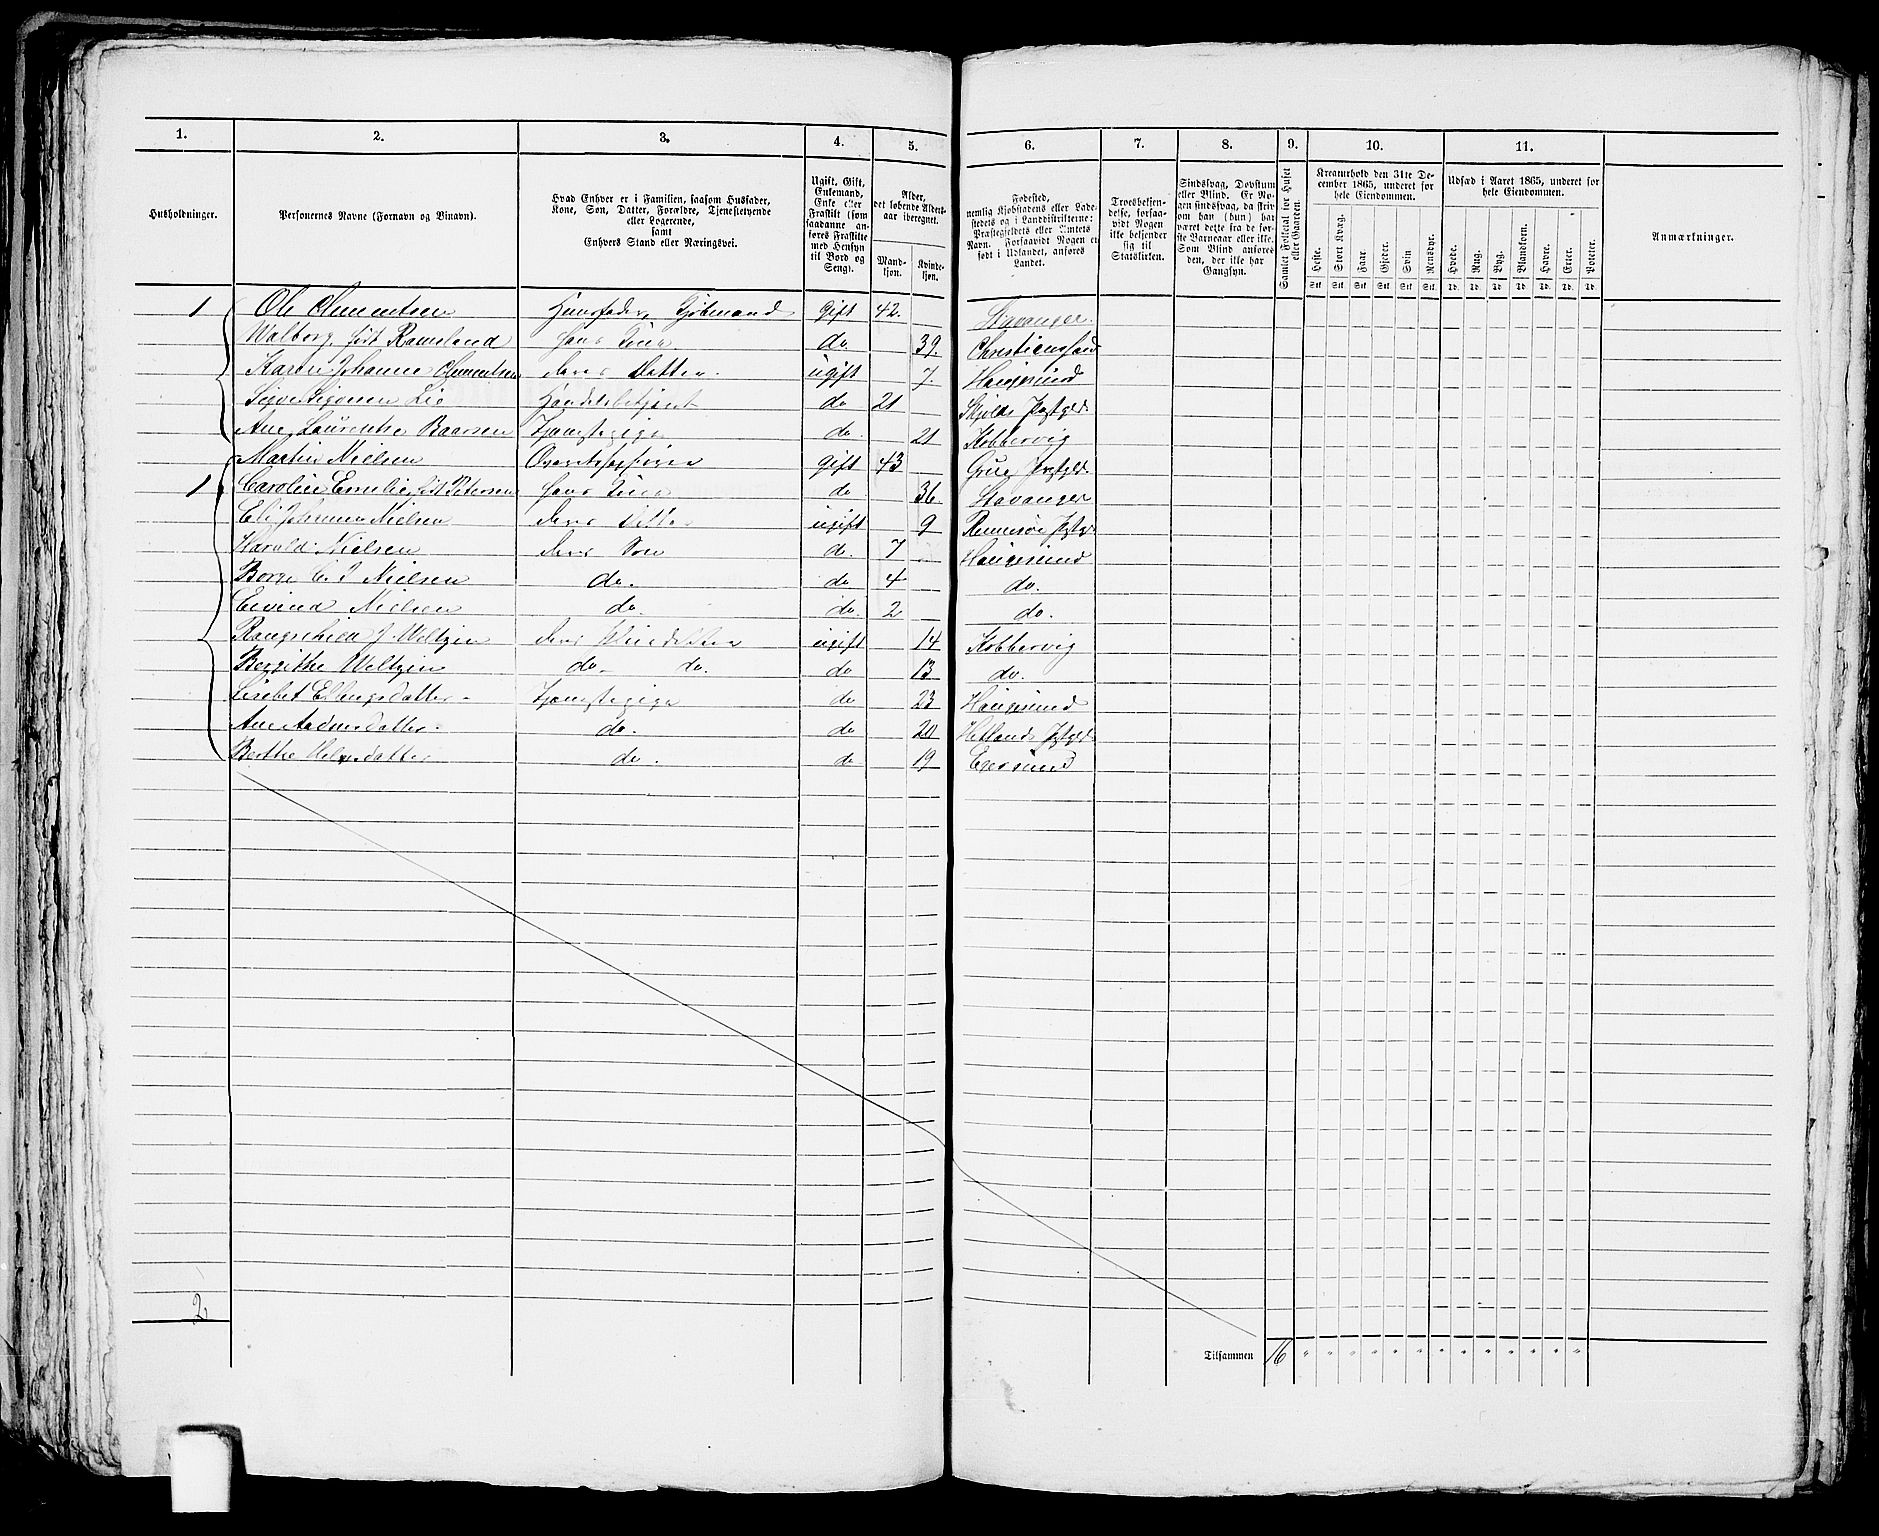 1. 2. 3. 4. 5. 6. 7. 8. 9. 10. 11.
Husholdninger.
Personernes Navne (Fornavn og Tilnavn).
Hvad Enhver er i Familien, saasom Husfader, Kone, Søn, Datter, Forældre, Tjenestetyende eller Logerende, samt Enhvers Stand eller Næringsvei.
Ugift, Gift, Enkemand, Enke eller Fraskilt (som saadanne anføres Fraskilte med Hensyn til Bord og Seng).
Alder, det løbende Alders-aar iberegnet.
Mandkjøn. Kvindekjøn.
Fødested, nemlig Kjøbstadens eller Ladestedets og i Landdistrikterne: Præstegjeldets eller Amtets Navn. Forsaavidt Nogen er født i Udlandet, anføres Landet.
Troesbekjendelse, forsaavidt Nogen ikke bekjender sig til Statskirken.
Sindssvag, Døvstum eller Blind. Er Nogen sindssvag, da skriv om han (hun) har været dette fra de første Barneaar eller ikke. Som Blind anføres den, der ikke har Gangsyn.
Samlet Folketal for Huset eller Gaarden.
Kreaturhold den 31te December 1865, anført for hele Eiendommen.
Heste. Stort Kvæg. Faar. Gjeder. Svin. Rensdyr.
Udsæd i Aaret 1865, anført for hele Eiendommen.
Hvede. Rug. Byg. Blandkorn. Havre. Erter. Poteter.
Stk. Stk. Stk. Stk. Stk. Stk. Td. Td. Td. Td. Td. Td. Td.
Anmærkninger.
1 Ole Clementsen Huusfader, Kjøbmand gift 42. Stavanger.
Walborg født Rameland hans Kone do 39. Christianssand
Karen Johanne Clementsen deres Datter. ugift 7. Haugesund
Sigve Sigvesen Lie Handelsbetjent do 21 Skjolds Pgjeld
Ane Laurentse Baarsen Tjenstepige do. 21 Kobbervig
1 Martin Nielsen gift 43 Grue Pgjeld
Caroline Emelie født Petersen hans Kone do 36. Stavanger
Eli Johanne Nielsen deres Datter ugift 9 Rennesøe Pgjeld
Harald Nielsen deres Søn do. 7 Haugesund
Børge C. J Nielsen do. do 4 do.
Eivind Nielsen do. do. 2 do.
J. Weltzin deres Pleiedatter ugift 14 Kobbervig
Bergithe Weltzin do. do. do 13 do.
Lisebet Ellingsdatter Tjenstepige do 23 Haugesund
Ane Aadnesdatter do. do 20 Hetlands Pgjeld
Berthe do. do 19 Egersund
2
Tilsammen 16 " " " " " " " " " " " " "